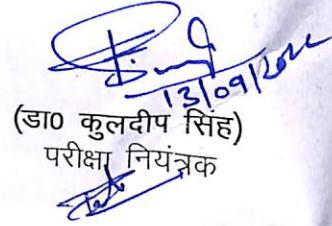 13/09/2022
(डा0 कुलदीप सिंह)
परीक्षा नियंत्रक